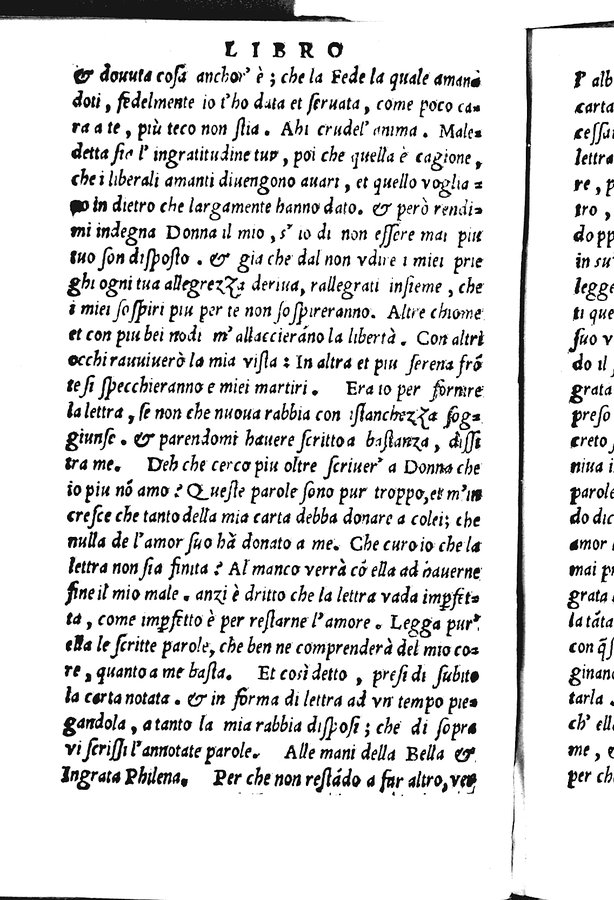 LIBRO
& douuta cosa anchor' è ; che la Fede la quale amanₔ
doti , fedelmente io t'ho data et seruata , come poco ca-
ra a te , più teco non stia . Ahi crudel' anima . Male-
detta sia l' ingratitudine tua , poi che quella è cagione ,
che i liberali amanti diuengono auari , et quello voglia -
no in dietro che largamente hanno dato . & però rendi-
mi indegna Donna il mio , s' io di non essere mai piu
tuo son disposto . & gia che dal non vdire i miei prie
ghi ogni tua allegrezza deriua, rallegrati insieme , che
i miei sospiri piu per te non sospireranno. Altre chiome
et con piu bei nodi m' allaccieráno la libertà . Con altri
occhi rauuiuerò la mia vista : In altra et piu serena frõ
te si specchieranno e miei martiri . Era io per fornire
la lettra , se non che nuoua rabbia con istanchezza sog-
giunse . & parendomi hauere scritto a bastanza , dissi
tra me. Deh che cerco piu oltre scriuer' a Donna che
io piu nõ amo ? Queste parole sono pur troppo, et m'in
cresce che tanto della mia carta debba donare a colei; che
nulla de l'amor suo hà donato a me. Che curo io che la
lettra non sia finita ? Al manco verrà cõ ella ad hauerne
fine il mio male . anzi è dritto che la lettra vada impfet-
ta , come impfetto è per restarne l'amore . Legga pur'
ella le scritte parole, che ben ne comprenderà del mio co-
re , quanto a me basta. Et così detto , presi di subito
la carta notata . & in forma di lettra ad vn tempo pie-
gandola , a tanto la mia rabbia disposi ; che di sopra
vi scrissi l'annotate parole. Alle mani della Bella &
Ingrata Philena. Per che non restádo a far altro, ven
P alb
carta
cessa
lettra
re , p
tro ,
do pp
in su
legge
ti que
suo v
do il
grata
preso
creto
niua i
parole
do dic
amor
mai p
grata
la tãta
con q̃s
ginan
tarla .
ch' ell
me , &
per ch